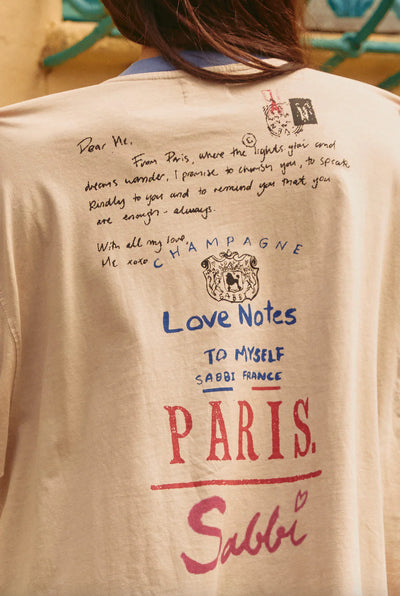 Dear Me,
From Paris, where the lights glow and
dreams wander, I promise to cherish you, to speak
kindly to you and to remind you that you
are enough - always.
With all my love
Me xoxo
©
CHAMPAGNE
SABBI
Love Notes
TO MYSELF
SABBI FRANCE
PARIS.
Sabbi